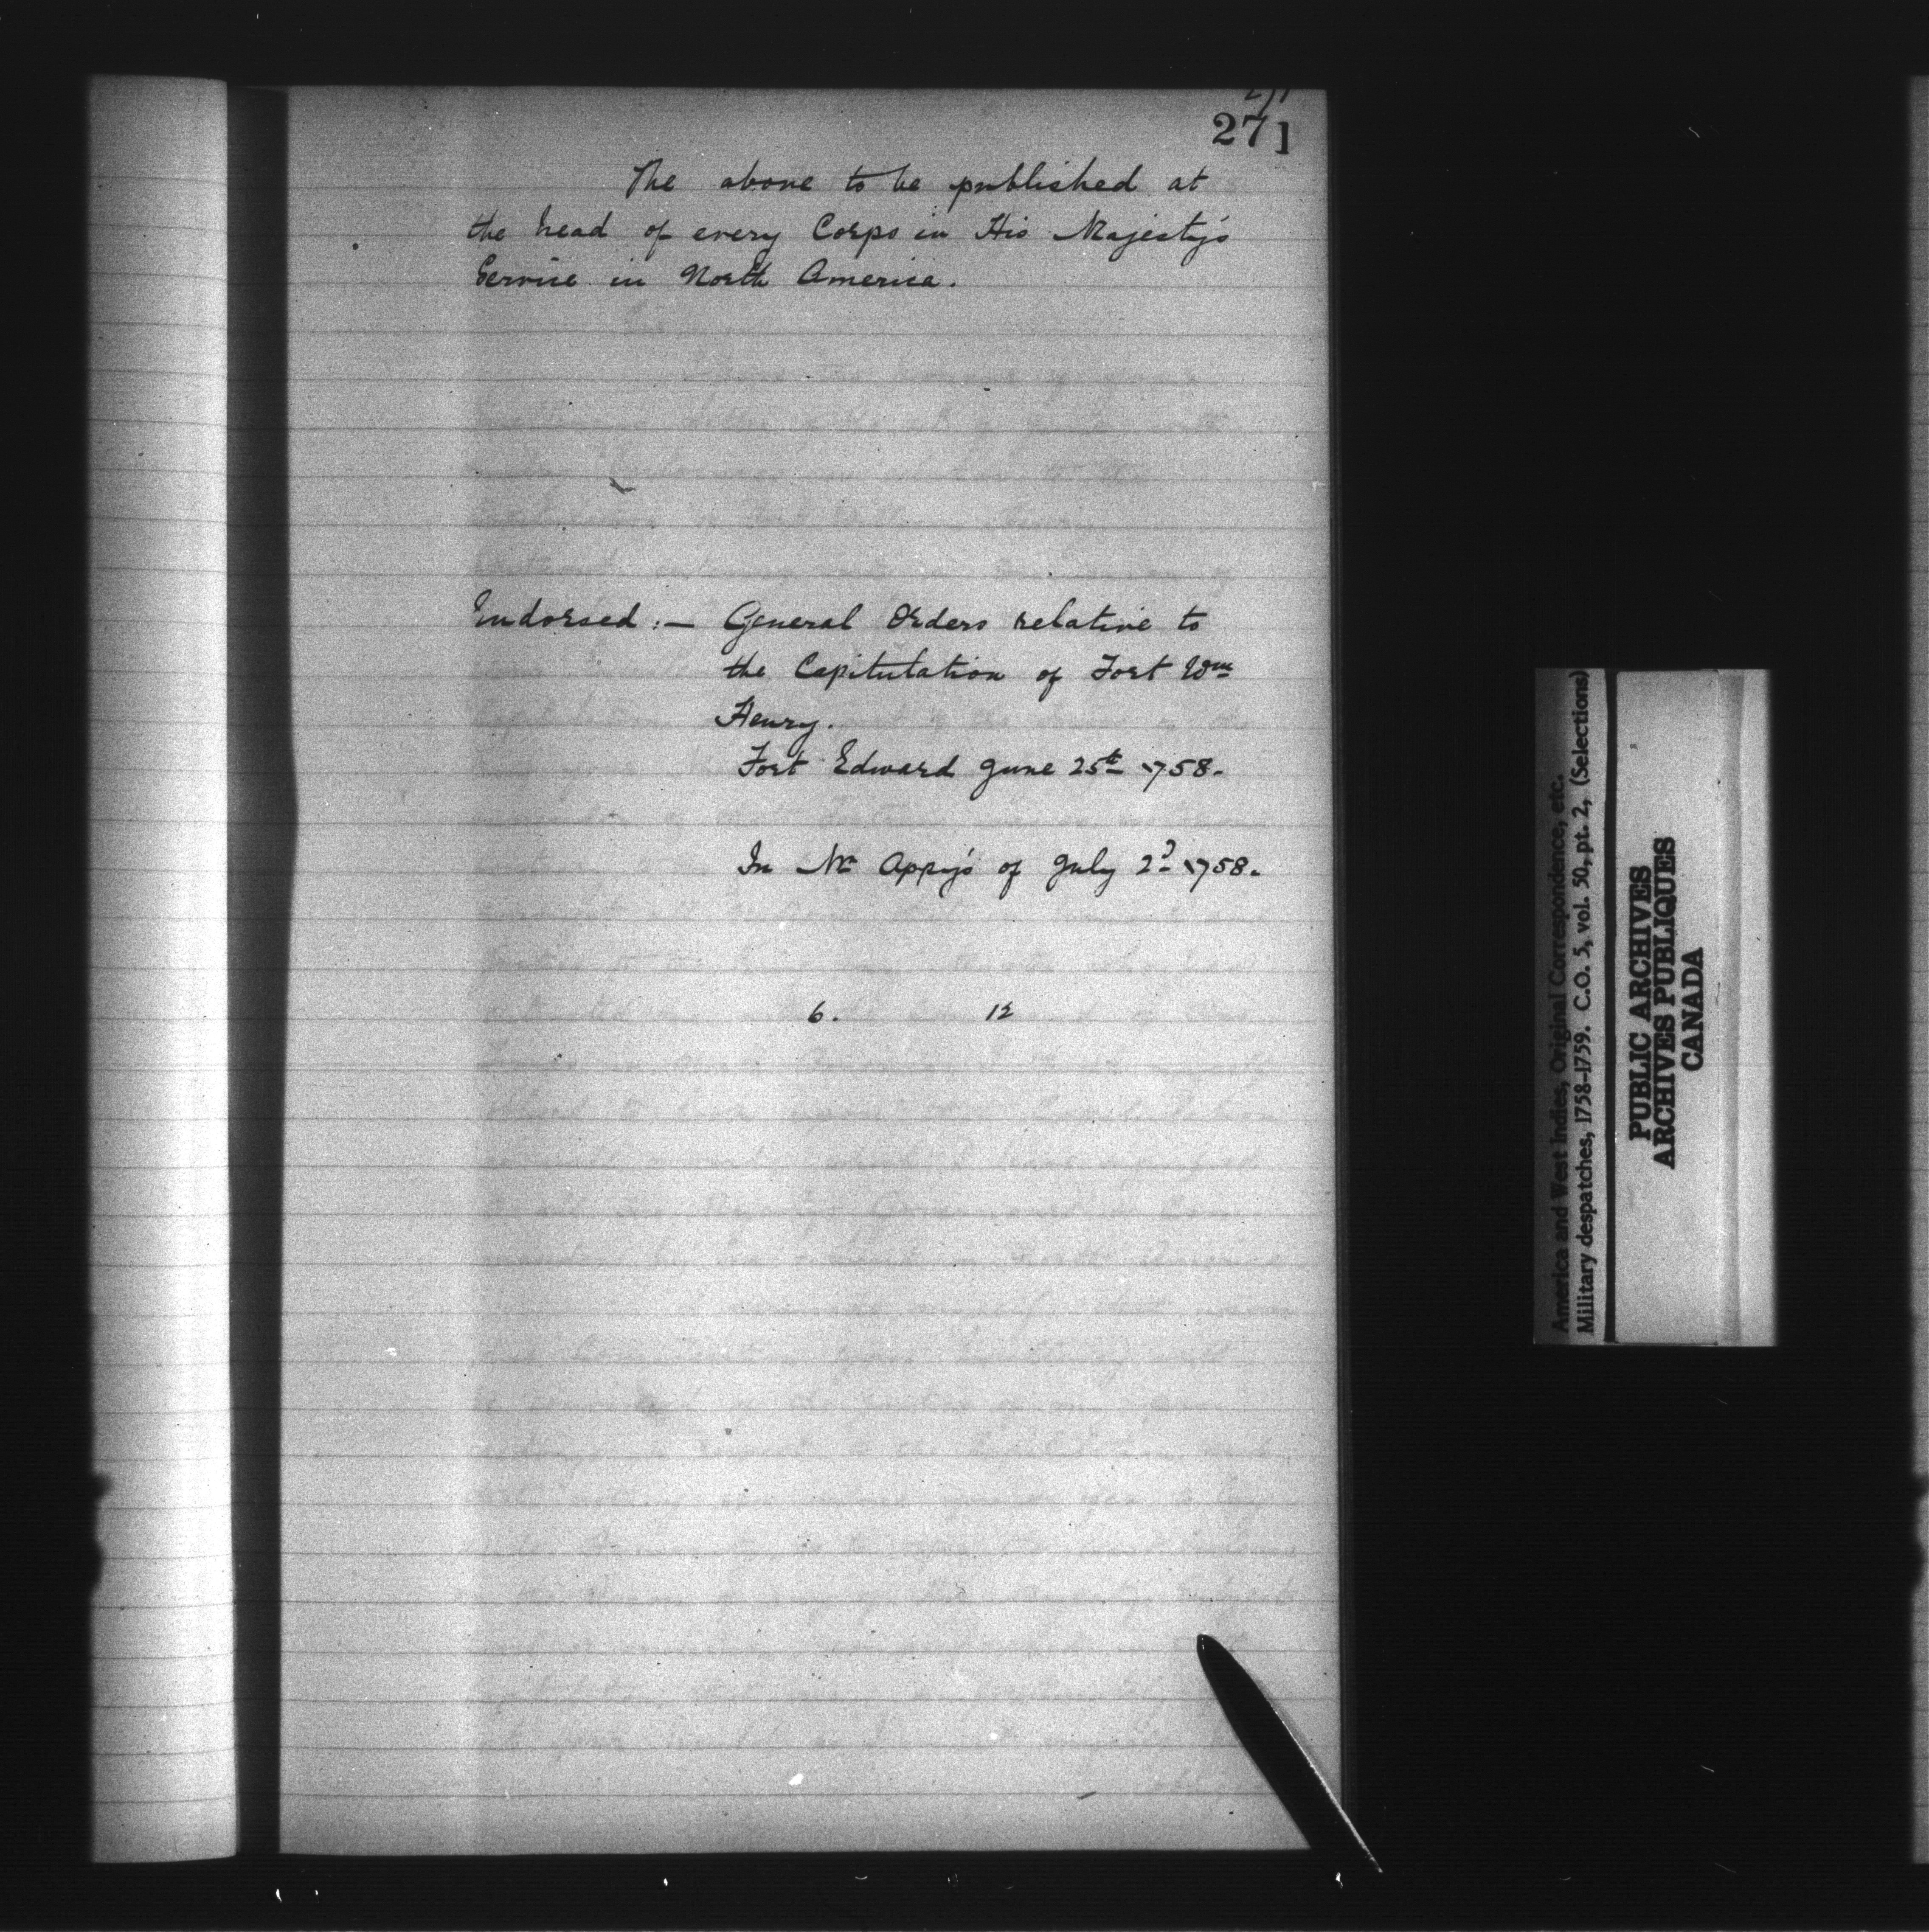 271
The above to be published at
the head of every Corps in His Majesty's
Service in North America.
Indorsed :— General Orders relative to
the Capitulation of Fort Wm
Henry.
Fort Edward June 25th 1758.
In Mr Appy's of July 2d 1758.
6. 12
America and West Indies, Original Correspondence, etc.
Military despatches, 1758-1759. C.O. 5, vol. 50, pt. 2, (Selections)
PUBLIC ARCHIVES
ARCHIVES PUBLIQUES
CANADA